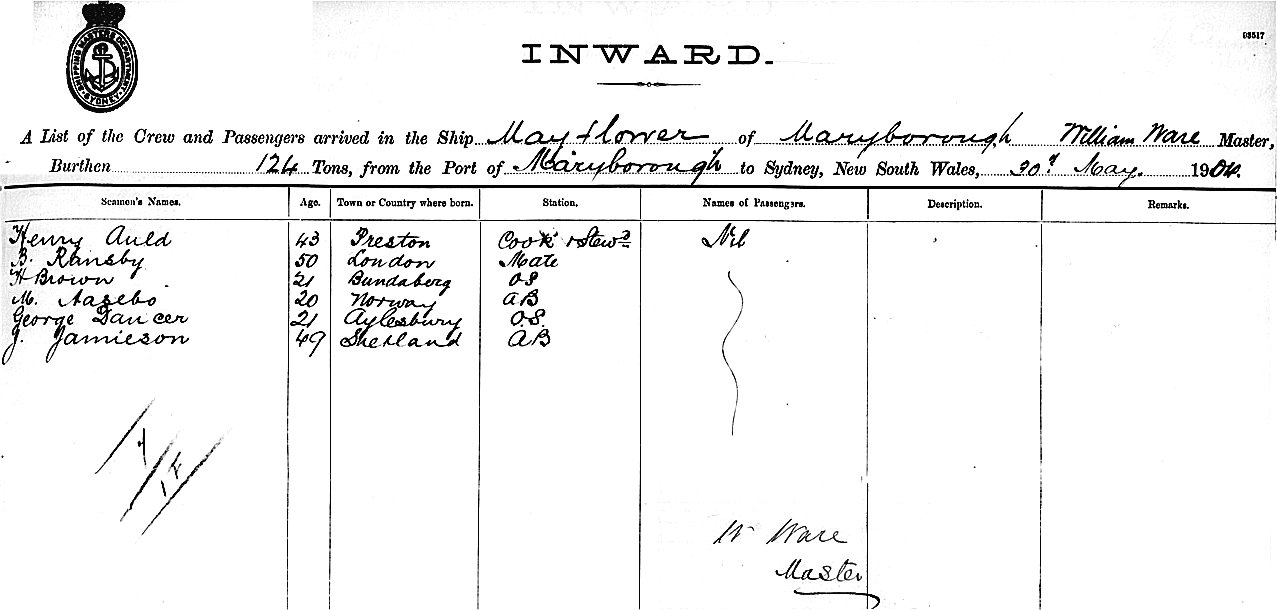 SHIPPING MASTERS DEPARTMENT SYDNEY
03517
INWARD.
A List of the Crew and Passengers arrived in the Ship Mayflower of Maryborough William Ware Master,
Burthen 124 Tons, from the Port of Maryborough to Sydney, New South Wales, 30th May. 1904.
Seamen's Names. Age. Town or Country where born. Station. Names of Passengers. Description. Remarks.
Henry Auld 43 Preston Cook & Stewd Nil
B. Ransby 50 London Mate
H Brown 21 Bundaberg OS
M. Aasebo 20 Norway AB
George Dancer 21 Aylesbury O.S.
J. Jamieson 49 Shetland AB
W Ware
Master